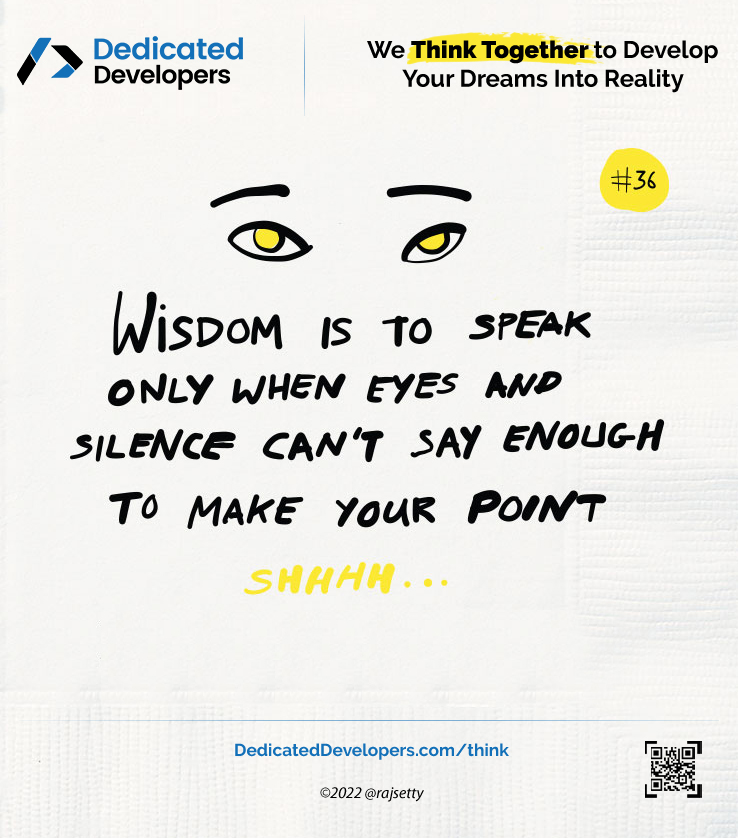 Dedicated
Developers
We Think Together to Develop
Your Dreams Into Reality
#36
WISDOM IS TO SPEAK
ONLY WHEN EYES AND
SILENCE CAN'T SAY ENOUGH
TO MAKE YOUR POINT
SHHHH...
DedicatedDevelopers.com/think
©2022 @rajsetty